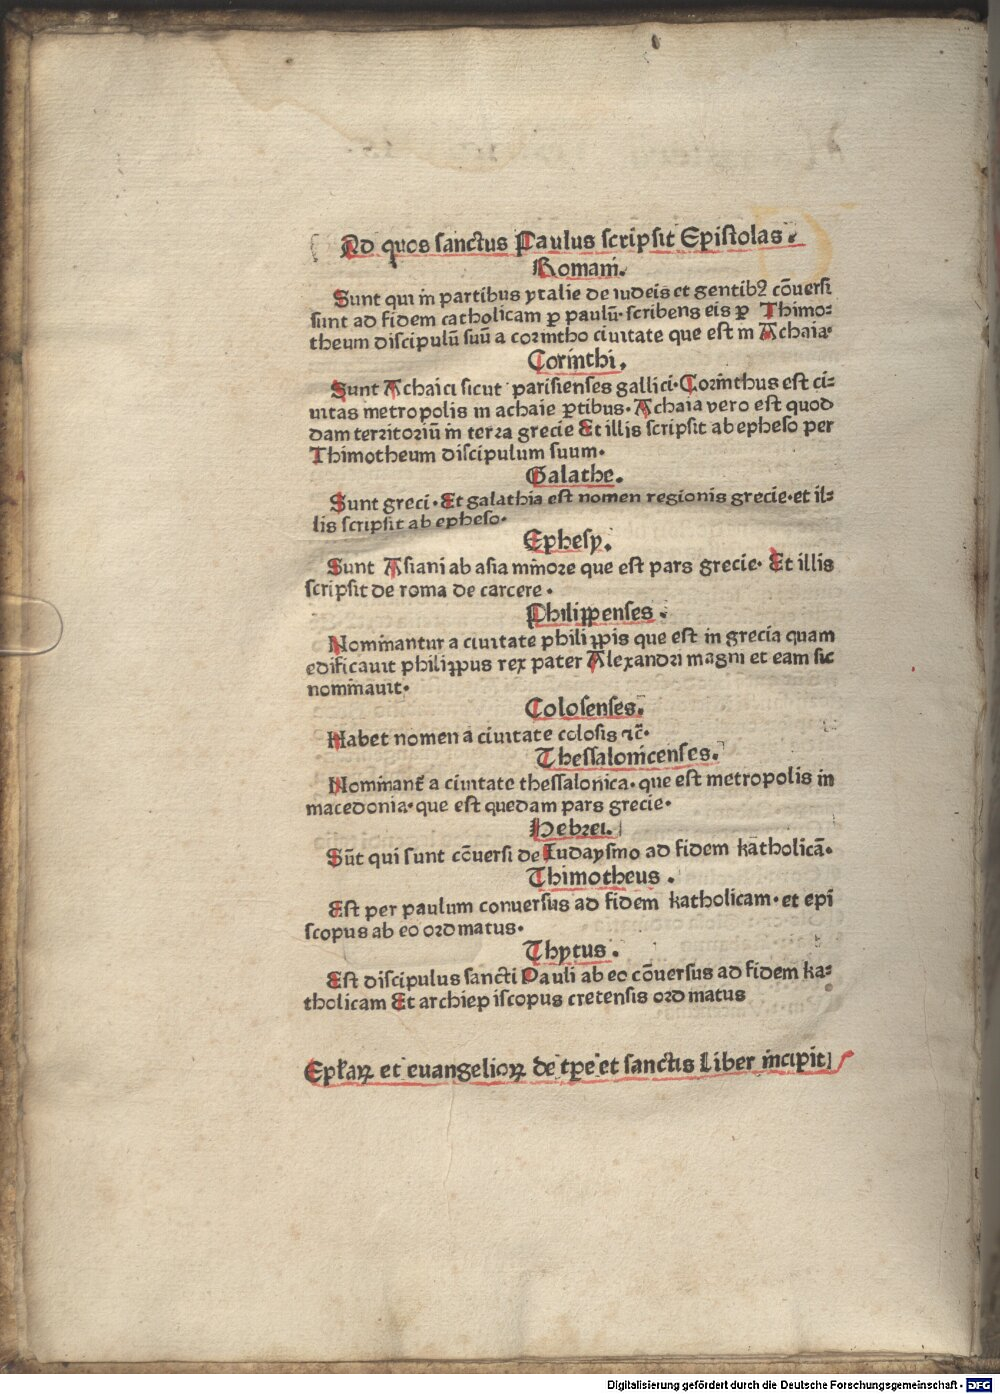 Ad quos sanctus Paulus scripsit Epistolas.
Romani.
Sunt qui in partibus ytalie de iudeis et gentibꝫ cōuersi
sunt ad fidem catholicam ꝑ paulū· scribens eis ꝑ Thimo⸗
theum discipulū suū a corintho ciuitate que est in Achaia·
Corinthi.
Sunt Achaici sicut parisienses gallici· Corinthus est ci⸗
uitas metropolis in achaie ꝑtibus· Achaia vero est quod
dam territoriū in terra grecie Et illis scripsit ab epheso per
Thimotheum discipulum suum·
Galathe.
Sunt greci· Et galathia est nomen regionis grecie· et il⸗
lis scripsit ab epheso·
Ephesy.
Sunt Asiani ab asia minore que est pars grecie· Et illis
scripsit de roma de carcere·
Philippenses.
Nominantur a ciuitate philippis que est in grecia quam
edificauit philippus rex pater Alexandri magni et eam sic
nominauit·
Colosenses.
Habet nomen a ciuitate colosis ⁊c̄·
Thessalonicenses.
Nominant̄ a ciuitate thessalonica· que est metropolis in
macedonia· que est quedam pars grecie·
Hebrei.
Sūt qui sunt cōuersi de Iudaysmo ad fidem katholicā·
Thimotheus.
Est per paulum conuersus ad fidem katholicam· et epi
scopus ab eo ordinatus·
Thytus.
Est discipulus sancti Pauli ab eo cōuersus ad fidem ka⸗
tholicam Et archiepiscopus cretensis ordinatus
Epl̄aꝝ et euangelioꝝ de tp̄e et sanctis Liber incipit
Digitalisierung gefördert durch die Deutsche Forschungsgemeinschaft - DFG